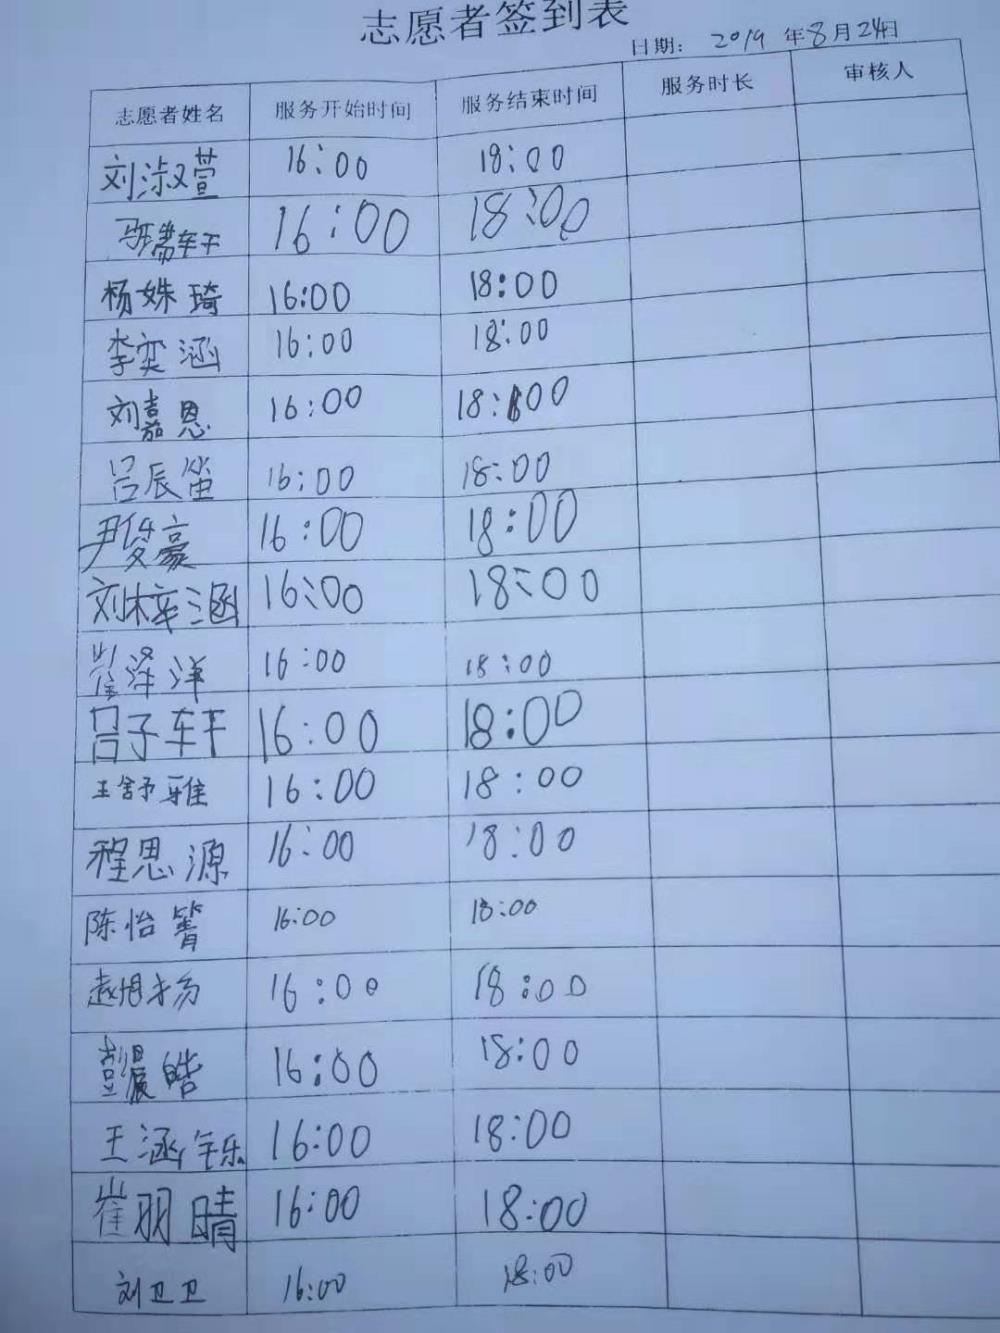 志愿者签到表
日期： 2019 年8月24日
志愿者姓名 服务开始时间 服务结束时间 服务时长 审核人
刘淑萱 16:00 18:00
16:00 18:00
杨姝琦 16:00 18:00
李奕涵 16:00 18:00
刘嘉恩 16:00 18:00
吕辰笛 16:00 18:00
尹俊豪 16:00 18:00
刘梓涵 16:00 18:00
崔泽洋 16:00 18:00
吕子轩 16:00 18:00
王舒雅 16:00 18:00
程思源 16:00 18:00
陈怡箐 16:00 18:00
赵旭扬 16:00 18:00
彭晨皓 16:00 18:00
王涵铄 16:00 18:00
崔羽晴 16:00 18:00
刘卫卫 16:00 18:00